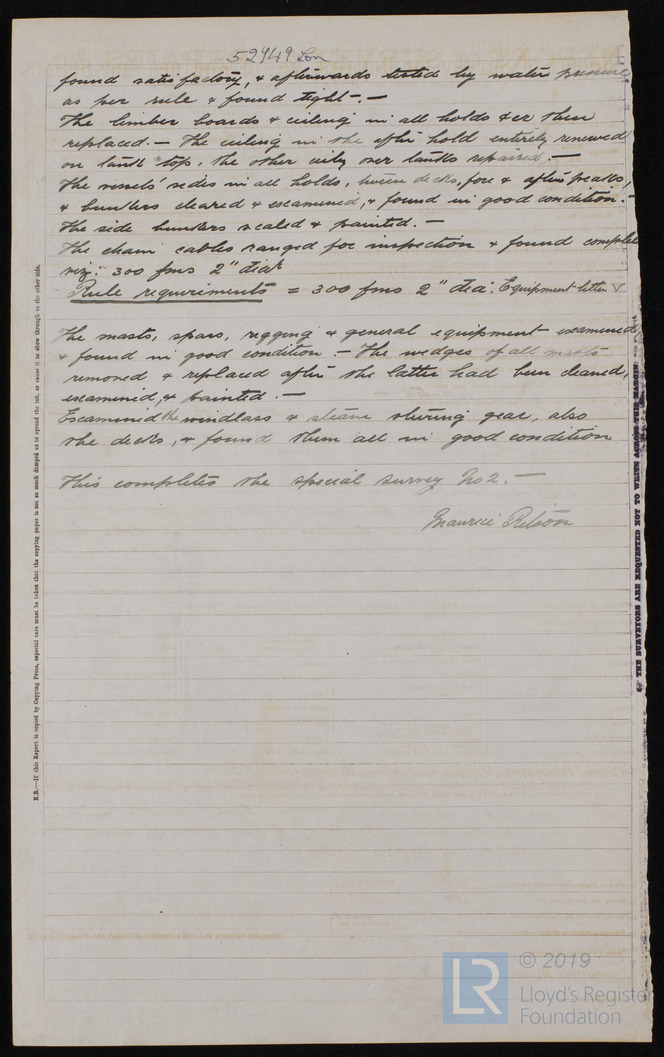 52949 Lon
found satisfactory, & afterwards tested by water pressure
as per rule & found tight. —
The limber boards & ceiling in all holds &er then
replaced. — The ceiling in the after hold entirely renewed
on tank top, the other ceilg over tanks repaired. —
The vessels' sides in all holds, tween decks, fore & after peaks,
& bunkers cleared & examined, & found in good condition. —
The side bunkers scaled & painted. —
The chain cables ranged for inspection & found complete
viz: 300 fms 2" diar
Rule requirements = 300 fms 2" dia: Equipment letter V
The masts, spars, rigging & general equipment examined
& found in good condition. — The wedges of all masts
removed & replaced after the latter had been cleaned,
examined, & painted. —
Examined the windlass & steam steering gear, also
the decks, & found them all in good condition
This completes the special survey No 2. —
Maurice Ritson
N.B.—If this Report is copied by Copying Press, especial care must be taken that the copying paper is not so much damped as to spread the ink, or cause it to show through to the other side.
THE SURVEYORS ARE REQUESTED NOT TO WRITE ACROSS THIS MARGIN.
LR
© 2019
Lloyd's Register
Foundation